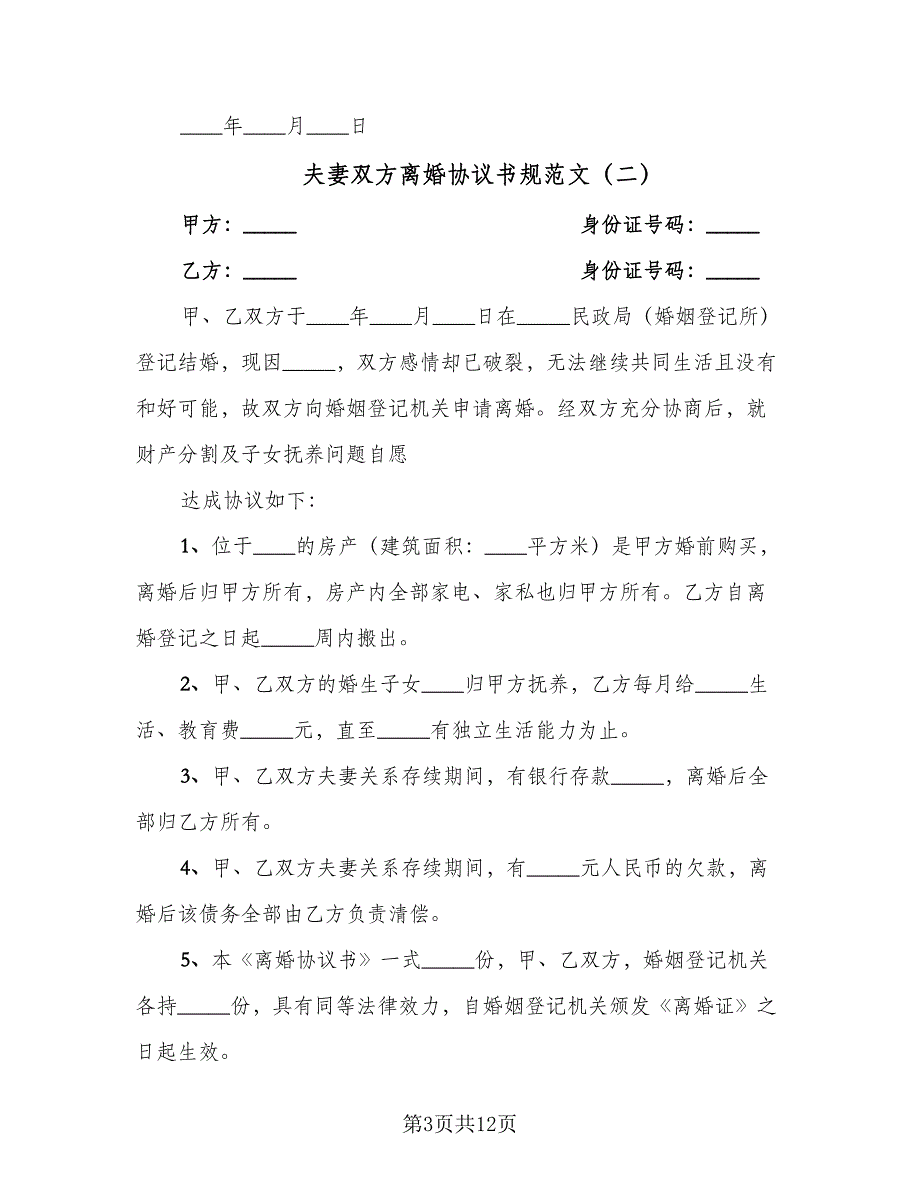 ____年____月____日
夫妻双方离婚协议书规范文（二）
甲方：_____ 身份证号码：_____
乙方：_____ 身份证号码：_____
甲、乙双方于____年____月____日在_____民政局（婚姻登记所）
登记结婚，现因_____，双方感情却已破裂，无法继续共同生活且没有
和好可能，故双方向婚姻登记机关申请离婚。经双方充分协商后，就
财产分割及子女抚养问题自愿
达成协议如下：
1、位于____的房产（建筑面积：____平方米）是甲方婚前购买，
离婚后归甲方所有，房产内全部家电、家私也归甲方所有。乙方自离
婚登记之日起_____周内搬出。
2、甲、乙双方的婚生子女____归甲方抚养，乙方每月给_____生
活、教育费_____元，直至_____有独立生活能力为止。
3、甲、乙双方夫妻关系存续期间，有银行存款_____，离婚后全
部归乙方所有。
4、甲、乙双方夫妻关系存续期间，有_____元人民币的欠款，离
婚后该债务全部由乙方负责清偿。
5、本《离婚协议书》一式_____份，甲、乙双方，婚姻登记机关
各持_____份，具有同等法律效力，自婚姻登记机关颁发《离婚证》之
日起生效。
第3页共12页